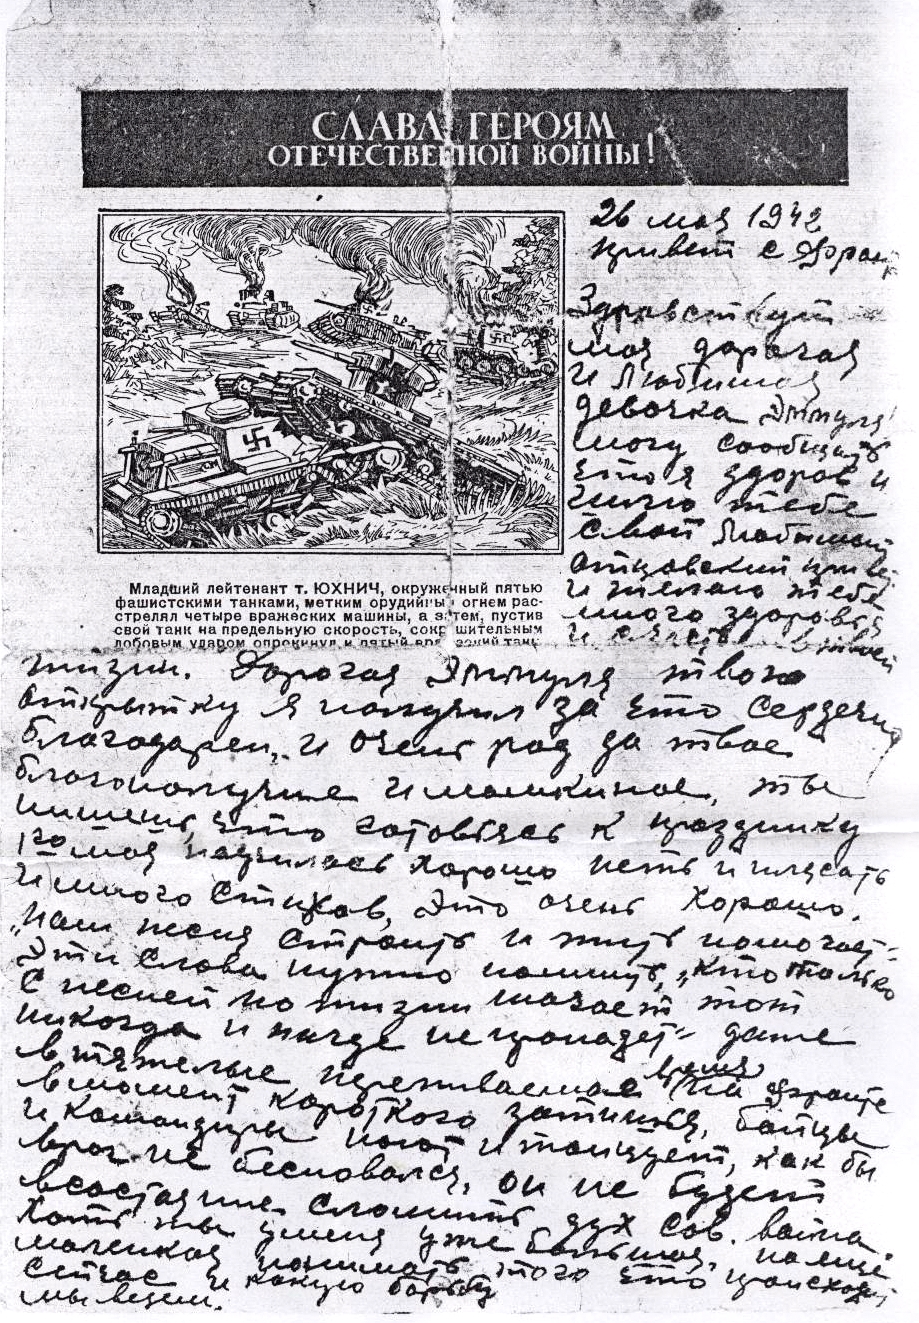 СЛАВА ГЕРОЯМ
ОТЕЧЕСТВЕННОЙ ВОЙНЫ!
26 мая 1942
привет с Фронт
Здравствуй
моя дорогая
и Любимая
девочка Эммуля!
могу сообщить
что я здоров и
шлю тебе
свой Любимый
отцовский привет
и желаю тебе
много здоровья
и счастья в твоей
Младший лейтенант т. ЮХНИЧ, окруженный пятью
фашистскими танками, метким орудийным огнем рас-
стрелял четыре вражеских машины, а затем, пустив
свой танк на предельную скорость, сокрушительным
лобовым ударом опрокинул и пятый вражеский танк.
жизни. Дорогая Эммуля твою
открытку я получил за что сердечно
благодарен, и очень рад за твое
благополучие и мамкиное, ты
пишешь, что готовясь к празднику
1го мая научилась хорошо петь и плясать
и много стихов, Это очень хорошо.
„нам песня строить и жить помогает"
Эти слова нужно помнить, „кто только
с песней по жизни шагает тот
никогда и нигде не пропадет" даже
в тяжелые переживаемое время, на Фронте
в момент короткого затишья, бойцы
и командиры поют и танцуют, как бы
враг не бесновался, он не будет
в состояние сломить дух сов. воина.
Хоть ты у меня уже большая, но еще
маленькая понимать того что происходит
сейчас и какую борьбу
мы ведем.